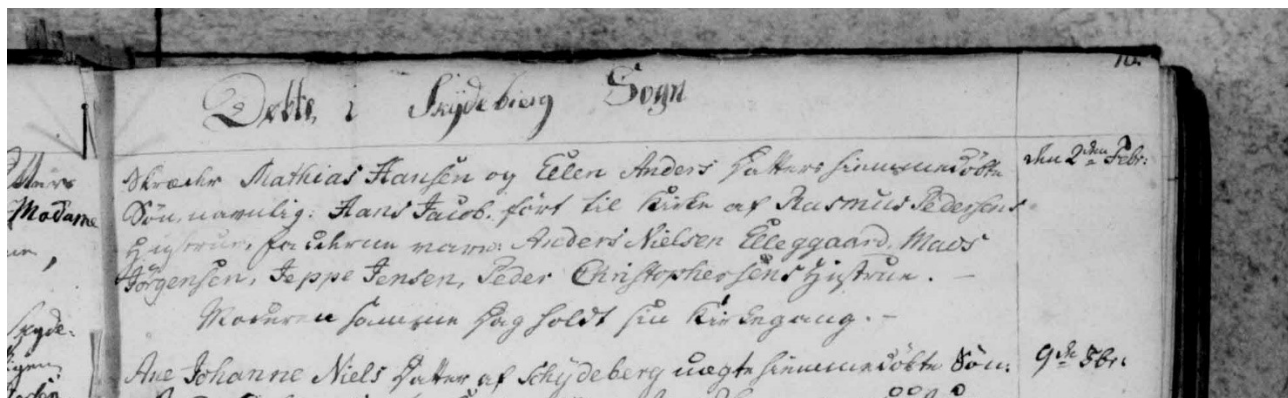 Døbte, i Skydebierg Sogn
den 2den Febr:
Skræder Mathias Hansen og Ellen Anders Datters hiemmedøbte
Søn, navnlig: Hans Jacob. ført til Kirke af Rasmus Pedersens
Hustrue, fadderne vare: Anders Nielsen Elleggaard, Mads
Jørgensen, Jeppe Jensen, Peder Christophersens Hustrue. -
Moderen samme Dag holdt sin Kirkegang. -
Ane Johanne Niels Datter af Schydeberg uægte hiemmedøbte Søn:
9de Fbr:
Madame